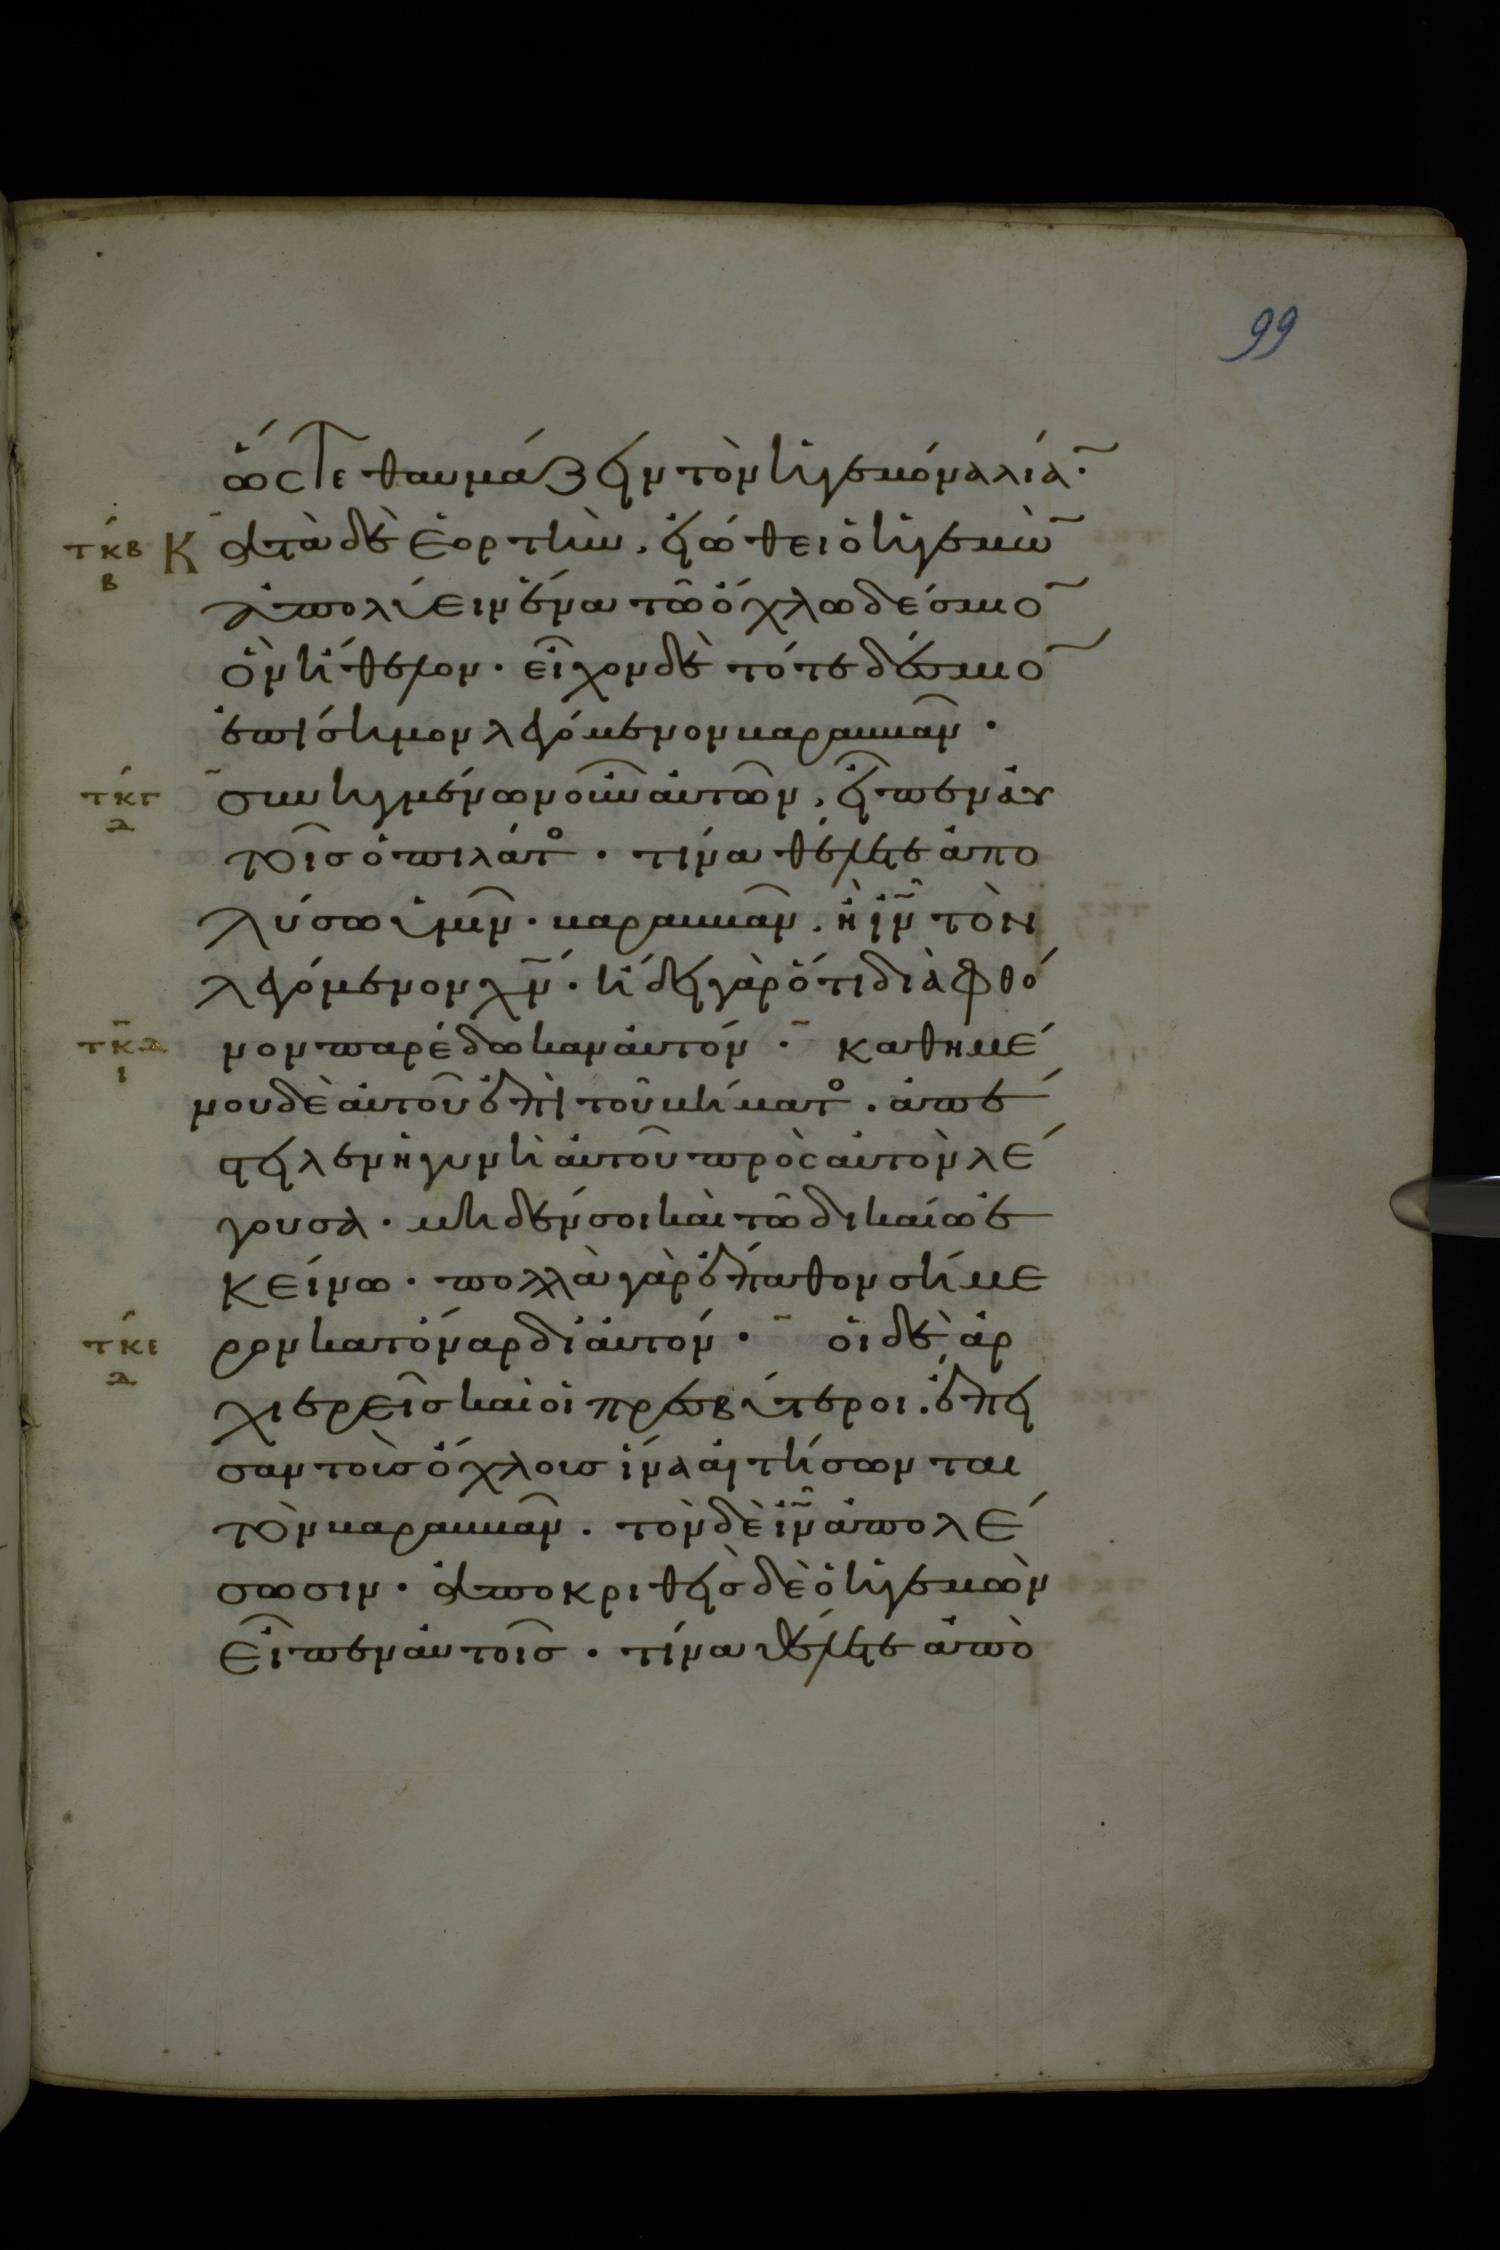 99
ὥστε θαυμάζειν τὸν ἡγεμόνα λία̅·
τκβ β Κατὰ δὲ ἑορτὴν, εἰώθει ὁ ἡγεμὼ̅
ἀπολύειν ἕνα τῶ ὄχλω δέσμιο̅
ὃν ἤθελον· εἶχον δὲ τότε δέσμιο̅
ἐπίσημον λεγόμενον βαραββᾶν·
τκγ δ συνηγμένων οὖν αὐτῶν, εἶπεν αὐ
τοῖς ὁ πιλάτος· τίνα θέλετε ἀπο
λύσω ὑμῖν· βαραββᾶν, ἢ ι̅ν̅ τὸν
λεγόμενον χ̅ν̅· ἤδει γὰρ ὅτι διὰ φθό
τκδ ι νον παρέδωκαν αὐτόν· καθημέ
νου δὲ αὐτοῦ ἐπὶ τοῦ βήματος· ἀπέ
στειλεν ἡ γυνὴ αὐτοῦ πρὸς αὐτὸν λέ
γουσα· μηδέν σοι καὶ τῶ δικαίω ἐ
κείνω· πολλὰ γὰρ ἔπαθον σήμε
τκε δ ρον κατόναρ δι αὐτόν· οἱ δὲ ἀρ
χιερεῖς καὶ οἱ πρεσβύτεροι· ἔπει
σαν τοὺς ὄχλους ἵνα αἰτήσωνται
τὸν βαραββᾶν· τὸν δὲ ι̅ν̅ ἀπολέ
σωσιν· ἀποκριθεὶς δὲ ὁ ἡγεμὼν
εἶπεν αὐτοῖς· τίνα θέλετε ἀπὸ